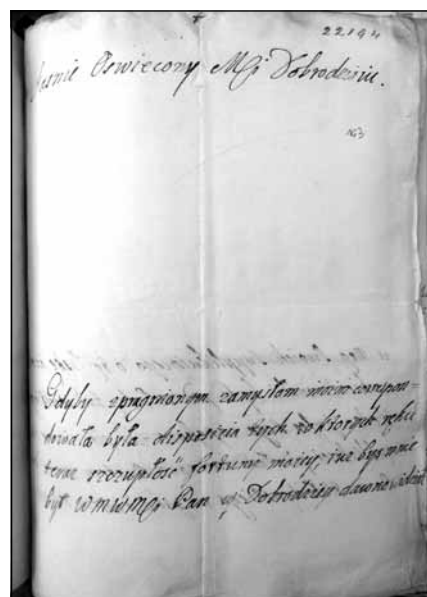 22194
Jasnie Oswiecony Mći Dobrodzieiu.
163
Gdyby zpragnionym zamysłom moim correspon=
dowała była disposicia tych, w ktorych ręku
teraz szczupłość fortuny moiey, iuz bys mnie
był WMWMći Pan y Dobrodziey dawno widział